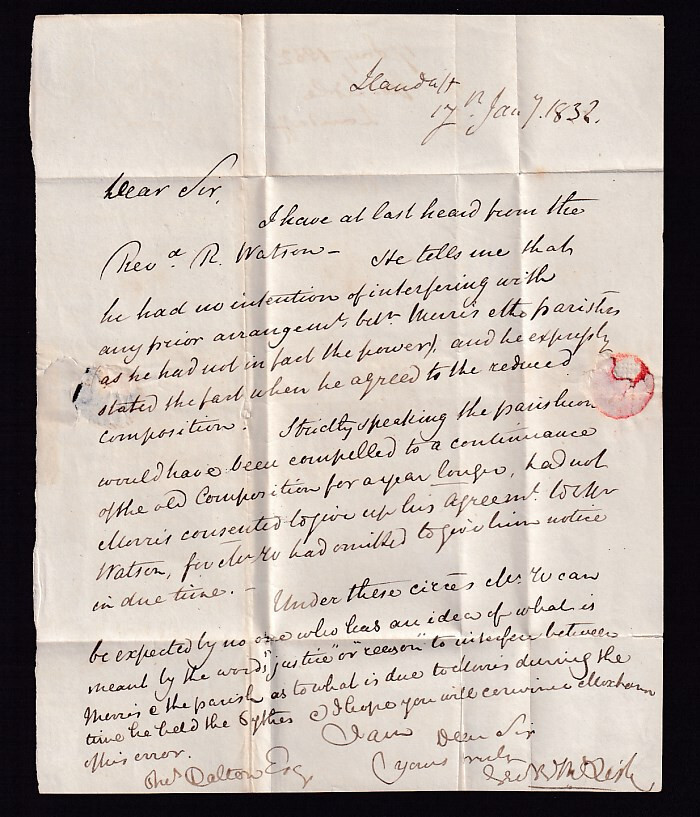 Llandaff
17th Jany. 1832.
Dear Sir,
I have at last heard from the
Revd. R. Watson – He tells me that
he had no intention of interfering with
any prior arrangemt. betn. Morris & the parishrs
as he had not in fact the power), and he expressly
stated the fact when he agreed to the reduced
composition. Strictly speaking the parishion
would have been compelled to a continuance
of the old Composition for a year longer, had not
Morris consented to give up his Agreemt. to Mr
Watson, for Mr. W had omitted to give him notice
in due time. – Under these circes Mr. W can
be expected by no one who has an idea of what is
meant by the words "justice" or "reason" to interfere between
Morris & the parish as to what is due to Morris during the
time he held the Tythes & I hope you will convince Moxham
of his error.
I am Dear Sir
Yours truly
Thos. Dalton Esq